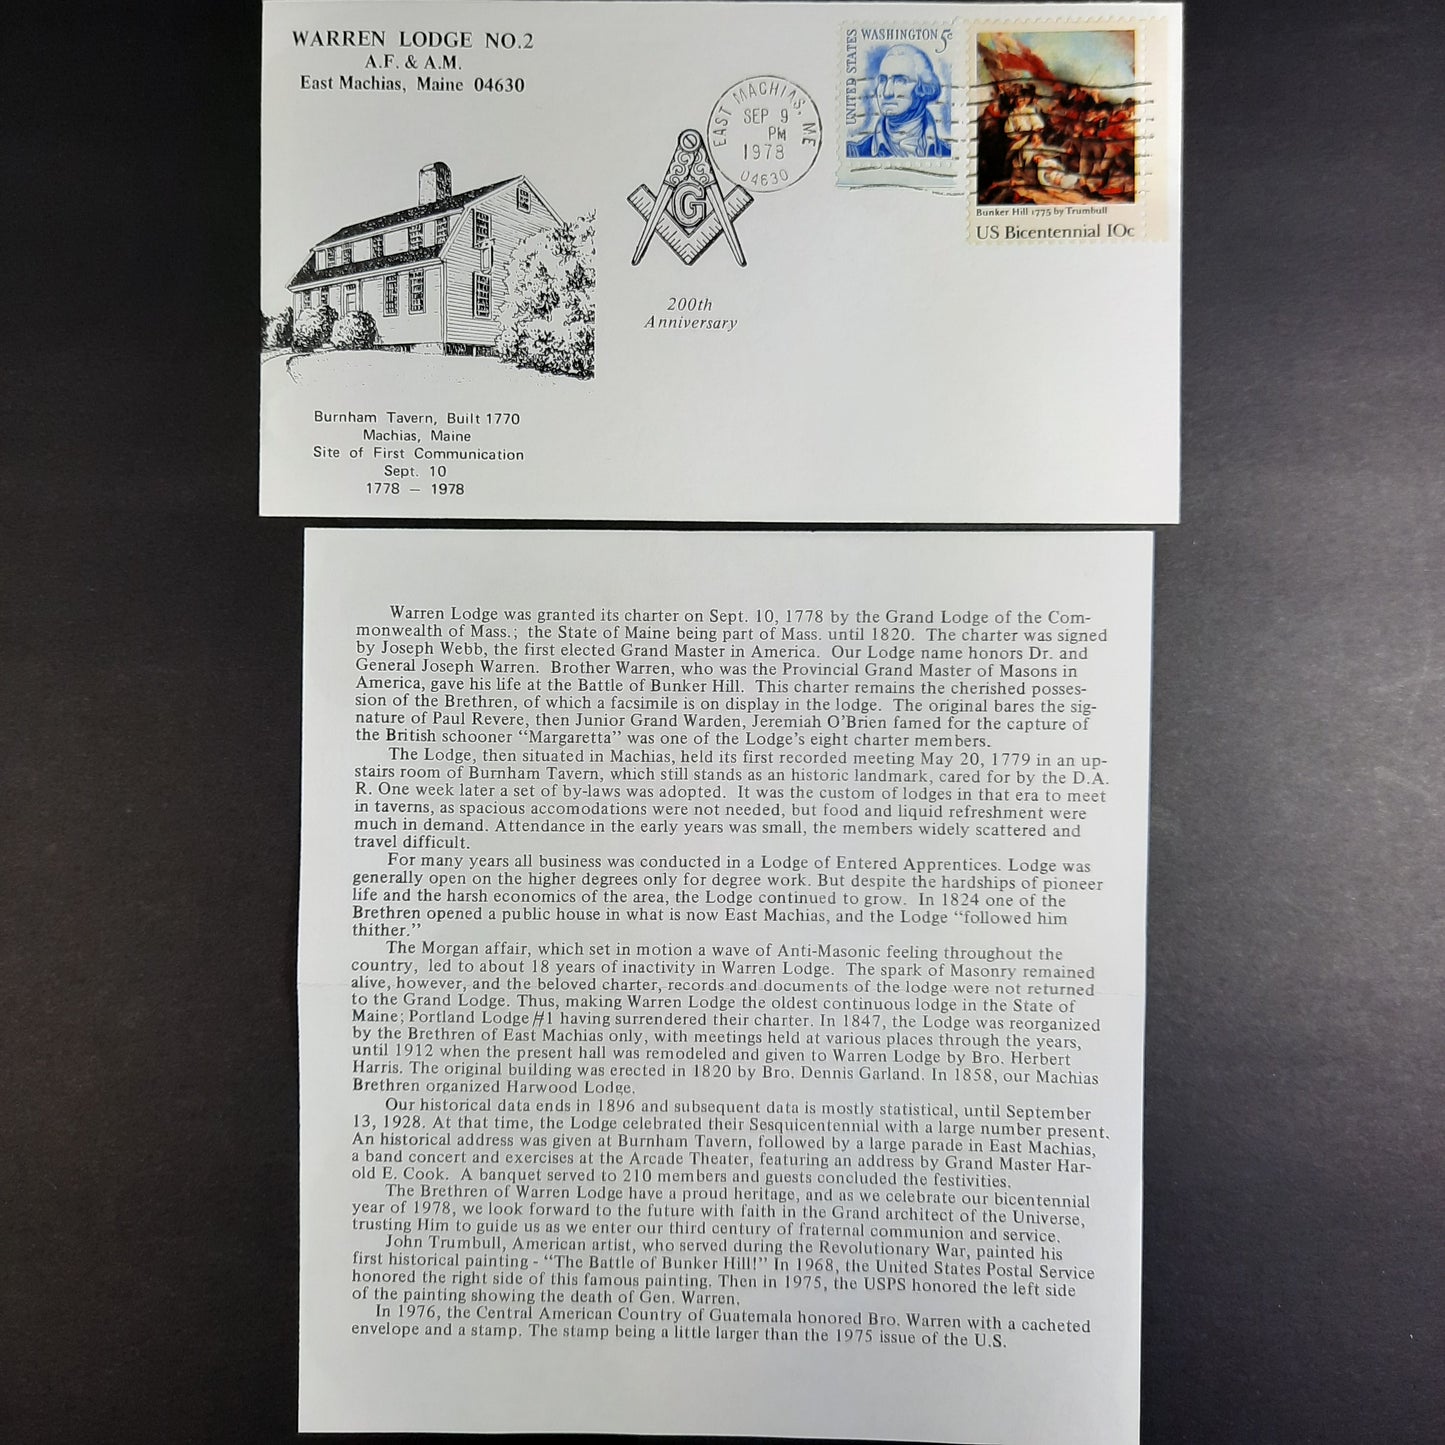 WARREN LODGE NO.2
A.F. & A.M.
East Machias, Maine 04630
EAST MACHIAS, ME
SEP 9
PM
1978
04630
UNITED STATES
WASHINGTON 5c
Bunker Hill 1775 by Trumbull
US Bicentennial 10c
G
200th
Anniversary
Burnham Tavern, Built 1770
Machias, Maine
Site of First Communication
Sept. 10
1778 — 1978
Warren Lodge was granted its charter on Sept. 10, 1778 by the Grand Lodge of the Com-
monwealth of Mass.; the State of Maine being part of Mass. until 1820. The charter was signed
by Joseph Webb, the first elected Grand Master in America. Our Lodge name honors Dr. and
General Joseph Warren. Brother Warren, who was the Provincial Grand Master of Masons in
America, gave his life at the Battle of Bunker Hill. This charter remains the cherished posses-
sion of the Brethren, of which a facsimile is on display in the lodge. The original bares the sig-
nature of Paul Revere, then Junior Grand Warden, Jeremiah O'Brien famed for the capture of
the British schooner "Margaretta" was one of the Lodge's eight charter members.
The Lodge, then situated in Machias, held its first recorded meeting May 20, 1779 in an up-
stairs room of Burnham Tavern, which still stands as an historic landmark, cared for by the D.A.
R. One week later a set of by-laws was adopted. It was the custom of lodges in that era to meet
in taverns, as spacious accomodations were not needed, but food and liquid refreshment were
much in demand. Attendance in the early years was small, the members widely scattered and
travel difficult.
For many years all business was conducted in a Lodge of Entered Apprentices. Lodge was
generally open on the higher degrees only for degree work. But despite the hardships of pioneer
life and the harsh economics of the area, the Lodge continued to grow. In 1824 one of the
Brethren opened a public house in what is now East Machias, and the Lodge "followed him
thither."
The Morgan affair, which set in motion a wave of Anti-Masonic feeling throughout the
country, led to about 18 years of inactivity in Warren Lodge. The spark of Masonry remained
alive, however, and the beloved charter, records and documents of the lodge were not returned
to the Grand Lodge. Thus, making Warren Lodge the oldest continuous lodge in the State of
Maine; Portland Lodge #1 having surrendered their charter. In 1847, the Lodge was reorganized
by the Brethren of East Machias only, with meetings held at various places through the years,
until 1912 when the present hall was remodeled and given to Warren Lodge by Bro. Herbert
Harris. The original building was erected in 1820 by Bro. Dennis Garland. In 1858, our Machias
Brethren organized Harwood Lodge.
Our historical data ends in 1896 and subsequent data is mostly statistical, until September
13, 1928. At that time, the Lodge celebrated their Sesquicentennial with a large number present.
An historical address was given at Burnham Tavern, followed by a large parade in East Machias,
a band concert and exercises at the Arcade Theater, featuring an address by Grand Master Har-
old E. Cook. A banquet served to 210 members and guests concluded the festivities.
The Brethren of Warren Lodge have a proud heritage, and as we celebrate our bicentennial
year of 1978, we look forward to the future with faith in the Grand architect of the Universe,
trusting Him to guide us as we enter our third century of fraternal communion and service.
John Trumbull, American artist, who served during the Revolutionary War, painted his
first historical painting - "The Battle of Bunker Hill!" In 1968, the United States Postal Service
honored the right side of this famous painting. Then in 1975, the USPS honored the left side
of the painting showing the death of Gen. Warren.
In 1976, the Central American Country of Guatemala honored Bro. Warren with a cacheted
envelope and a stamp. The stamp being a little larger than the 1975 issue of the U.S.